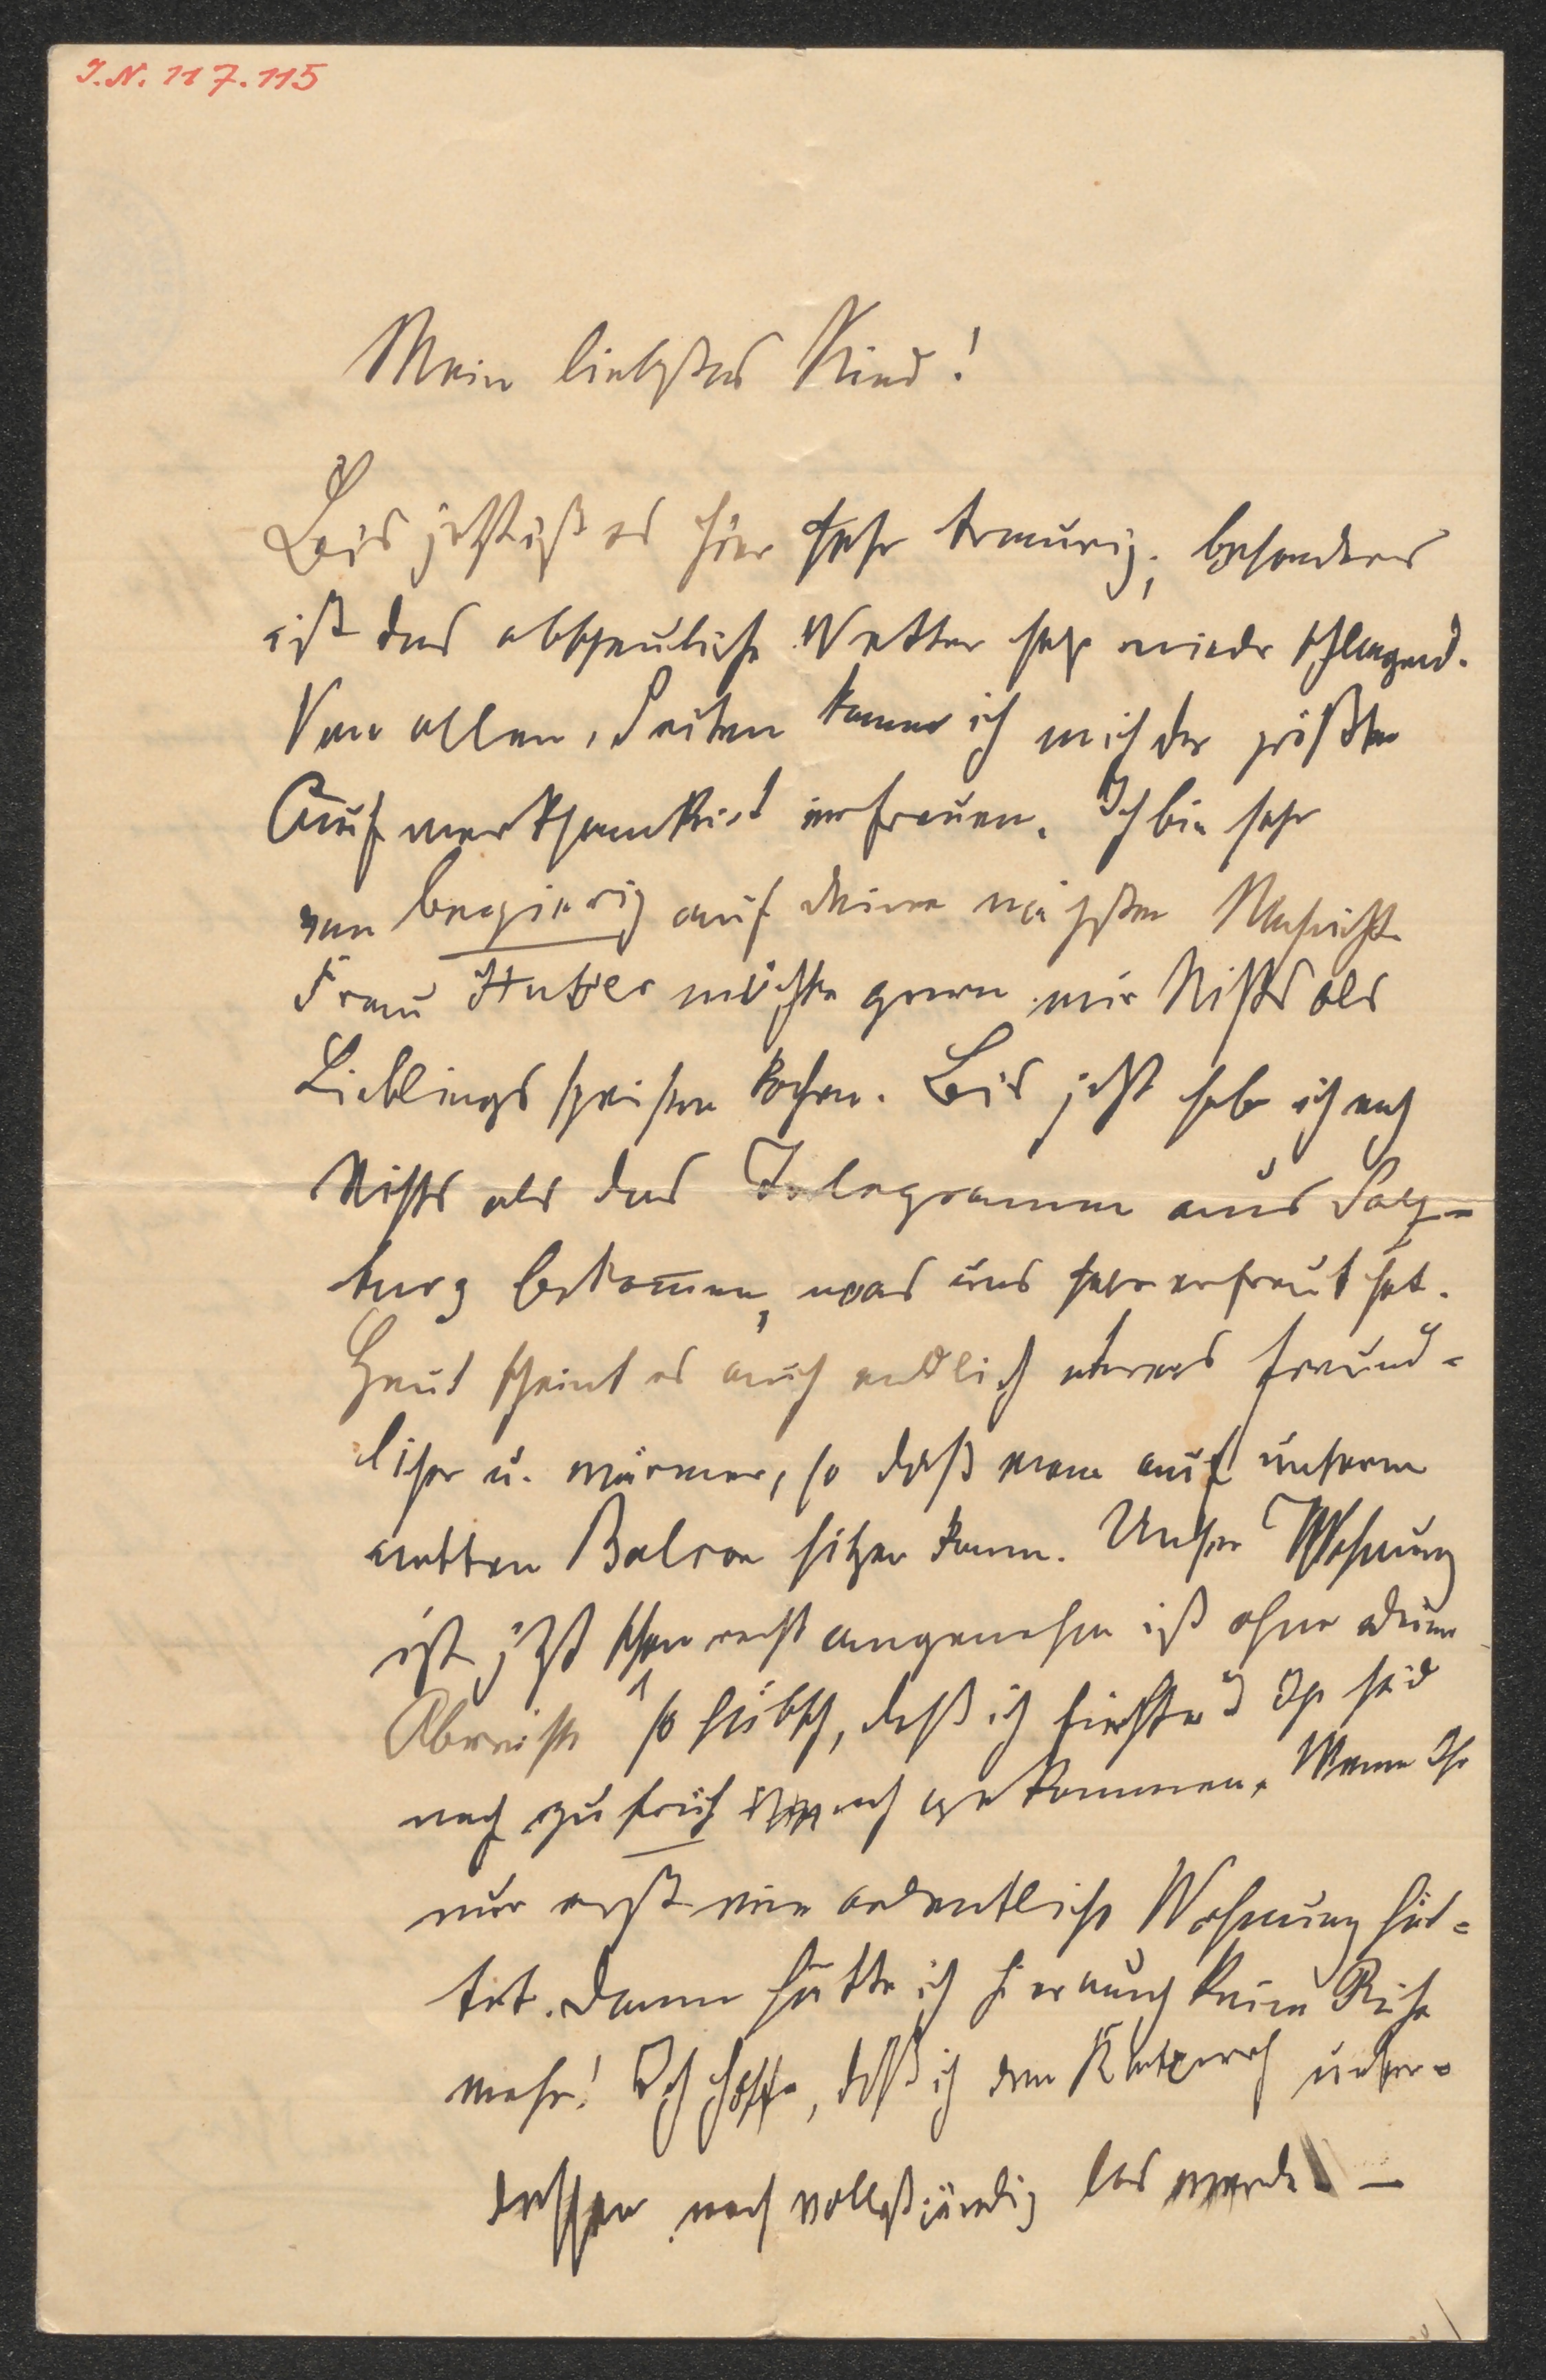 I. N. 117.115
Mein liebstes Kind!
Bis jetzt ist es hier sehr traurig; besonders
ist das abscheuliche Wetter sehr nieder schlagend.
Von allen Seiten kann ich mich der größten
Aufmerksamkeit erfreuen. Ich bin sehr
neu begierig auf deine nächsten Nachricht.
Frau Huber möchte gern mir Nichts als
Lieblingsspeisen kochen. Bis jetzt habe ich noch
Nichts als das Telegramm aus Salz-
burg bekommen, was uns sehr erfreut hat.
Heut scheint es auch endlich etwas freund-
licher u. wärmer, so daß man auf unserm
netten Balcon sitzen kann. Unsere Wohnung
ist jetzt schon recht angenehm ist ohne deine
Abreise so hübsch, daß ich fürchte Ihr seid
noch zu früh nach gekommen. Wenn Ihr
nur erst eine ordentliche Wohnung hät-
tet. Dann hätte ich hier auch keine Ruhe
mehr! Ich hoffe, daß ich den unter-
dessen noch vollständig los werde. —